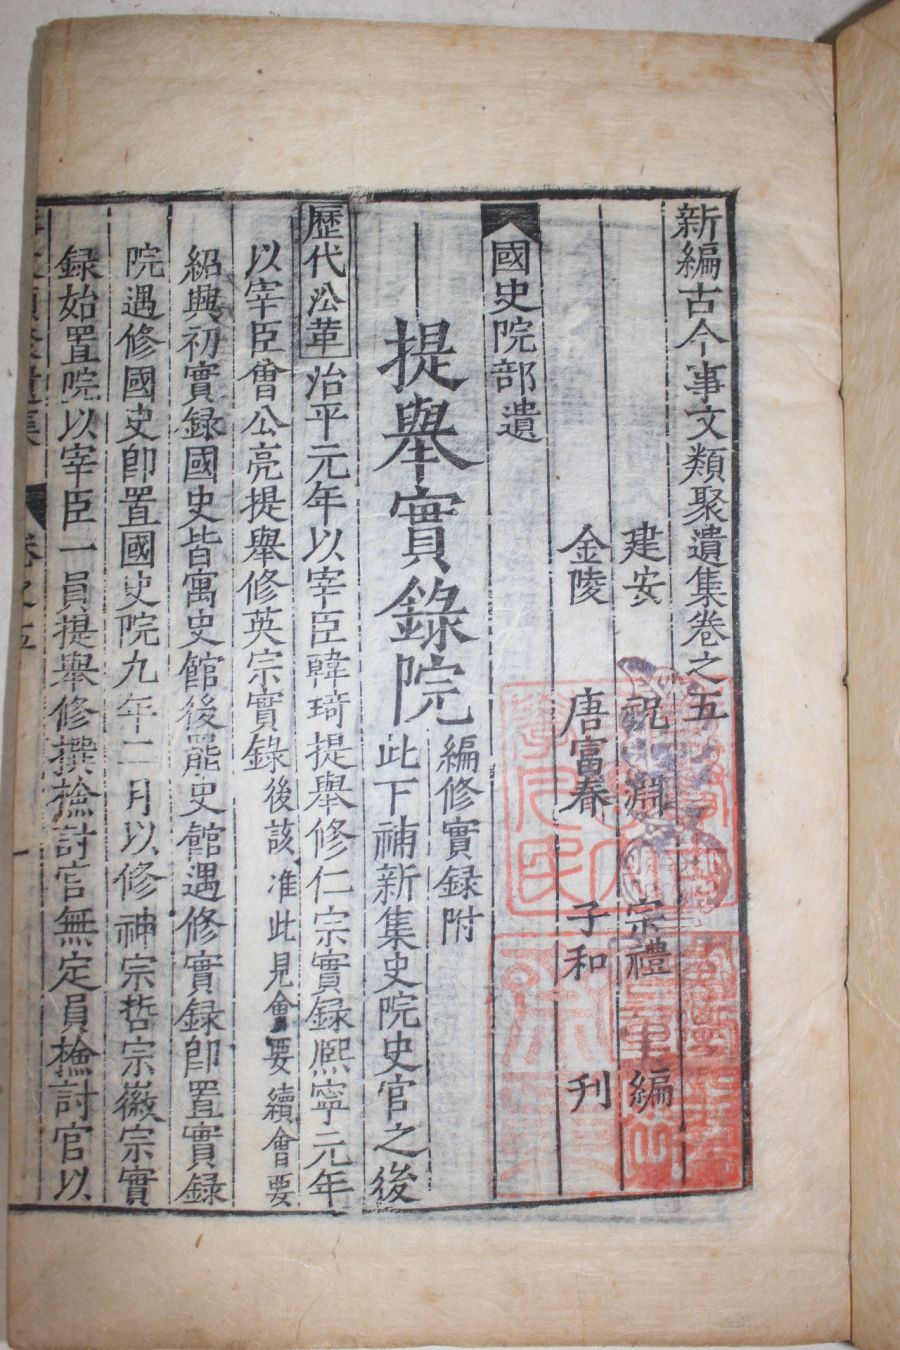 新編古今事文類聚遺集卷之五
建安 祝淵 宗禮 編
金陵 唐富春 子和 刋
國史院部遺
提舉實錄院
編修實録附
此下補新集史院史官之後
歷代㳂革 治平元年以宰臣韓琦提舉修仁宗實録熈寧元年
以宰臣曾公亮提舉修英宗實錄 後該准此見會要續會要
紹興初實録國史皆寓史館後罷史館遇修實録卽置實録
院遇修國史卽置國史院九年二月以修神宗哲宗徽宗實
録始置院以宰臣一員提舉修撰檢討官無定員檢討官以
卷之五
一